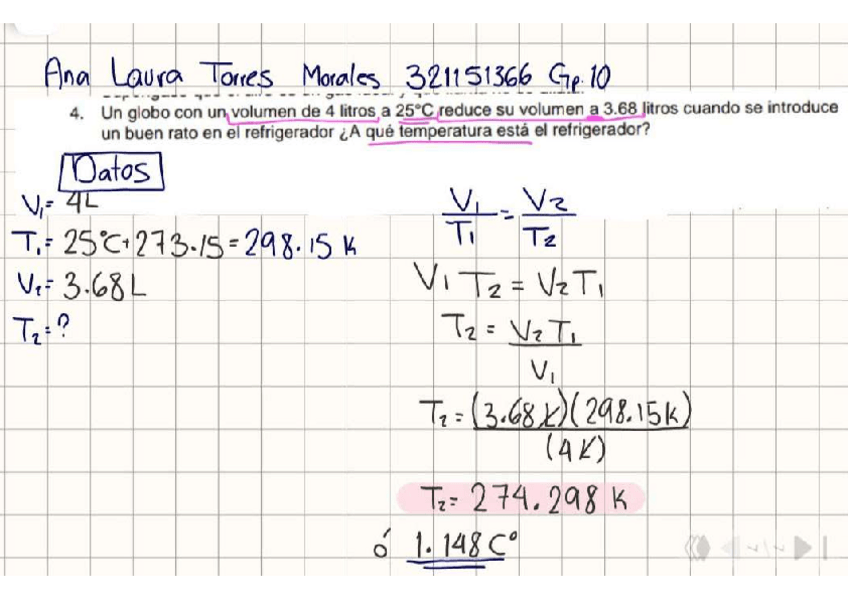 Ana Laura Torres Morales 321151366 Gp.10
4. Un globo con un volumen de 4 litros a 25°C reduce su volumen a 3.68 litros cuando se introduce
un buen rato en el refrigerador ¿A qué temperatura está el refrigerador?
Datos
V₁= 4L
T₁= 25°C+273.15=298.15 K
V₂= 3.68L
T₂=?
V₁/T₁ = V₂/T₂
V₁ T₂ = V₂ T₁
T₂ = V₂ T₁ / V₁
T₂ = (3.68 L)(298.15K) / (4 L)
T₂= 274.298 K
ó 1.148 C°